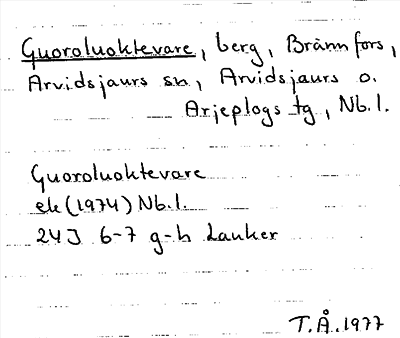 Guoroluoktevare, berg, Brännfors,
Arvidsjaurs sn, Arvidsjaurs o.
Arjeplogs tg, Nb.l.
Guoroluoktevare
ek (1974) Nb.l.
24J 6-7 g-h Lauker
T.Å. 1977